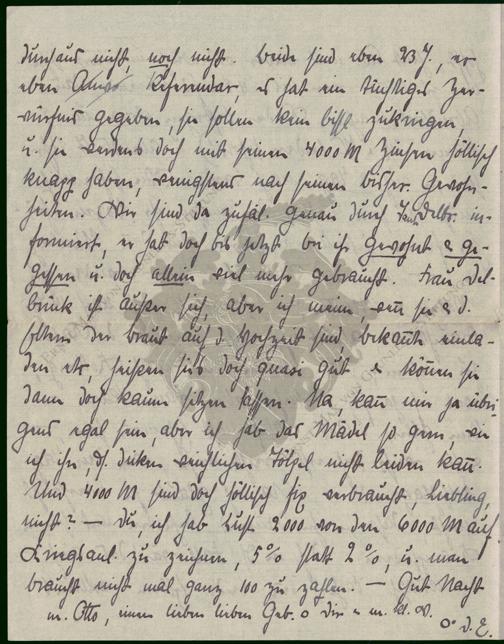 durchaus nicht, noch nicht. Beide sind eben 23 J., er
eben Referendar, es hat ein tüchtiges Zer-
würfnis gegeben, sie sollen kein bißl zukriegen,
u. sie werdens doch mit seinen 4000 M Zinsen höllisch
knapp haben, wenigstens nach seinen bisher. Gewohn-
heiten. Wir sind da zufäl. genau durch Delbr. in-
formiert, er hat doch bis jetzt bei ihr gewohnt & ge-
gessen u. doch allein viel mehr gebraucht. Frau Del-
brück ist außer sich, aber ich meine, wenn sie & d.
Eltern der Braut auf d. Hochzeit sind, bekannte einla-
den etc, heißen sies doch quasi gut & können sie
dann doch kaum sitzen lassen. Na, kann mir ja übri-
gens egal sein, aber ich hab das Mädel so gern, wie
ich ihn, d. dicken Tölpel nicht leiden kann.
Und 4000 M sind doch höllisch fix verbraucht, Liebling,
nicht? — Du, ich hab Lust 2000 von den 6000 M auf
Kriegsanl. zu zeichnen, 5% statt 2%, u. man
braucht nicht mal ganz 100 zu zahlen. — Gut Nacht
m. Otto, einen lieben lieben Geb. o Dir & m. kl.
o d. E.